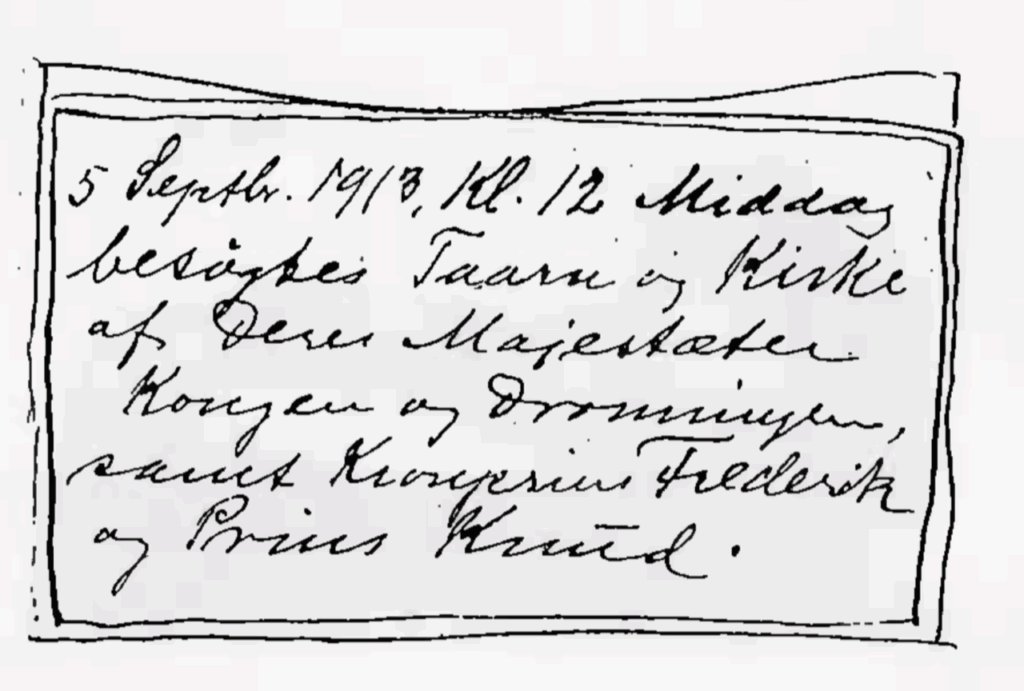 5 Septbr. 1913, Kl. 12 Middag
besøgtes Taarn og Kirke
af Deres Majestæter
Kongen og Dronningen,
samt Kronprins Frederik
og Prins Knud.